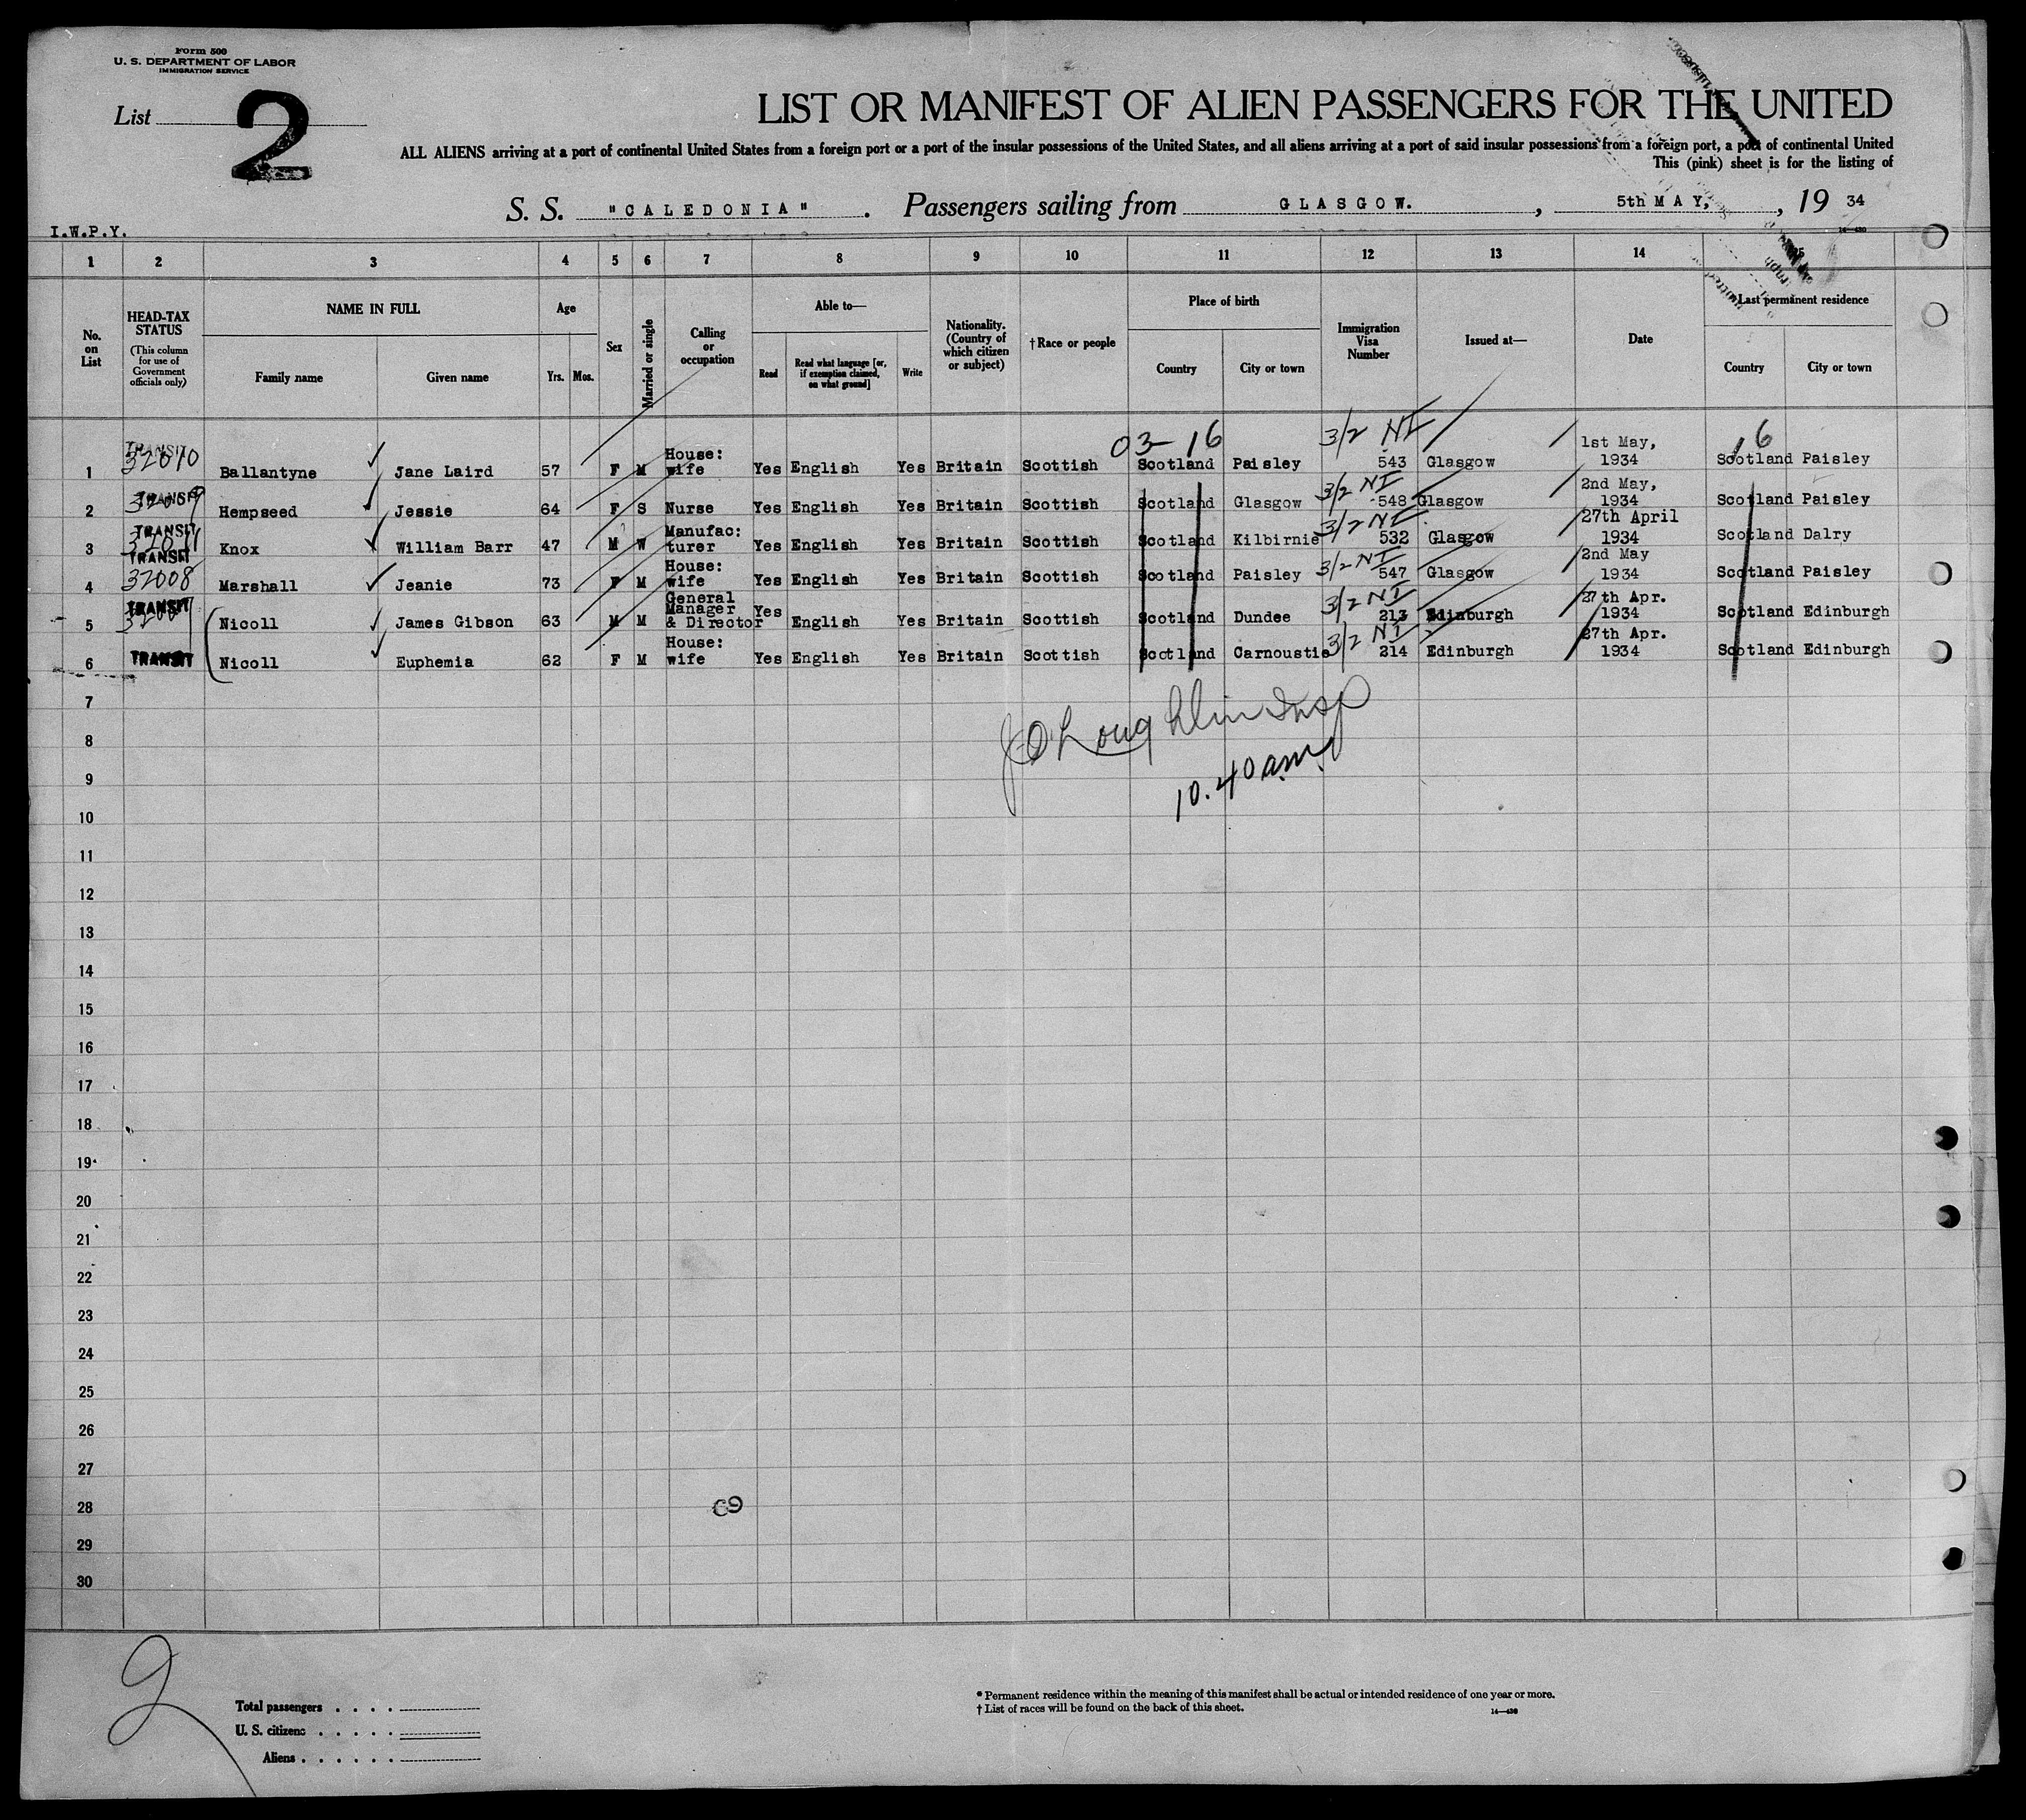 Form 500
U. S. DEPARTMENT OF LABOR
IMMIGRATION SERVICE
List 2
LIST OR MANIFEST OF ALIEN PASSENGERS FOR THE UNITED
ALL ALIENS arriving at a port of continental United States from a foreign port or a port of the insular possessions of the United States, and all aliens arriving at a port of said insular possessions from a foreign port, a port of continental United
This (pink) sheet is for the listing of
S. S. "CALEDONIA". Passengers sailing from GLASGOW., 5th MAY, , 19 34
14—430
I.W.P.Y.
1 2 3 4 5 6 7 8 9 10 11 12 13 14 15
No. on List
HEAD-TAX STATUS
(This column for use of Government officials only)
NAME IN FULL
Family name Given name
Age
Yrs. Mos.
Sex
Married or single
Calling or occupation
Able to—
Read
Read what language [or, if exemption claimed, on what ground]
Write
Nationality. (Country of which citizen or subject)
†Race or people
Place of birth
Country City or town
Immigration Visa Number
Issued at—
Date
Last permanent residence
Country City or town
03-16 3/2 NI 6
1 TRANSIT 32010 Ballantyne Jane Laird 57 F M House: wife Yes English Yes Britain Scottish Scotland Paisley 543 Glasgow 1st May, 1934 Scotland Paisley
2 TRANSIT 32009 Hempseed Jessie 64 F S Nurse Yes English Yes Britain Scottish Scotland Glasgow 3/2 NI 548 Glasgow 2nd May, 1934 Scotland Paisley
3 TRANSIT 32011 Knox William Barr 47 M W Manufac: turer Yes English Yes Britain Scottish Scotland Kilbirnie 3/2 NI 532 Glasgow 27th April 1934 Scotland Dalry
4 TRANSIT 32008 Marshall Jeanie 73 F M House: wife Yes English Yes Britain Scottish Scotland Paisley 3/2 NI 547 Glasgow 2nd May 1934 Scotland Paisley
5 TRANSIT Nicoll James Gibson 63 M M General Manager & Director Yes English Yes Britain Scottish Scotland Dundee 3/2 NI 213 Edinburgh 27th Apr. 1934 Scotland Edinburgh
6 TRANSIT Nicoll Euphemia 62 F M House: wife Yes English Yes Britain Scottish Scotland Carnoustie 3/2 NI 214 Edinburgh 27th Apr. 1934 Scotland Edinburgh
7
J O'Loughlin Insp
8
9
10.40 am
10
11
12
13
14
15
16
17
18
19
20
21
22
23
24
25
26
27
28
29
30
2
Total passengers . . . .
U. S. citizens . . . . .
Aliens . . . . . .
* Permanent residence within the meaning of this manifest shall be actual or intended residence of one year or more.
† List of races will be found on the back of this sheet.
14—430